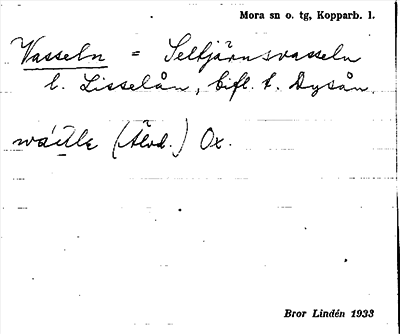 Mora sn o. tg, Kopparb. l.
Vasseln = Seltjärnsvasseln
l. Lisselån, bifl. t. Dysån.
(Älvd.) Ox.
Bror Lindén 1933